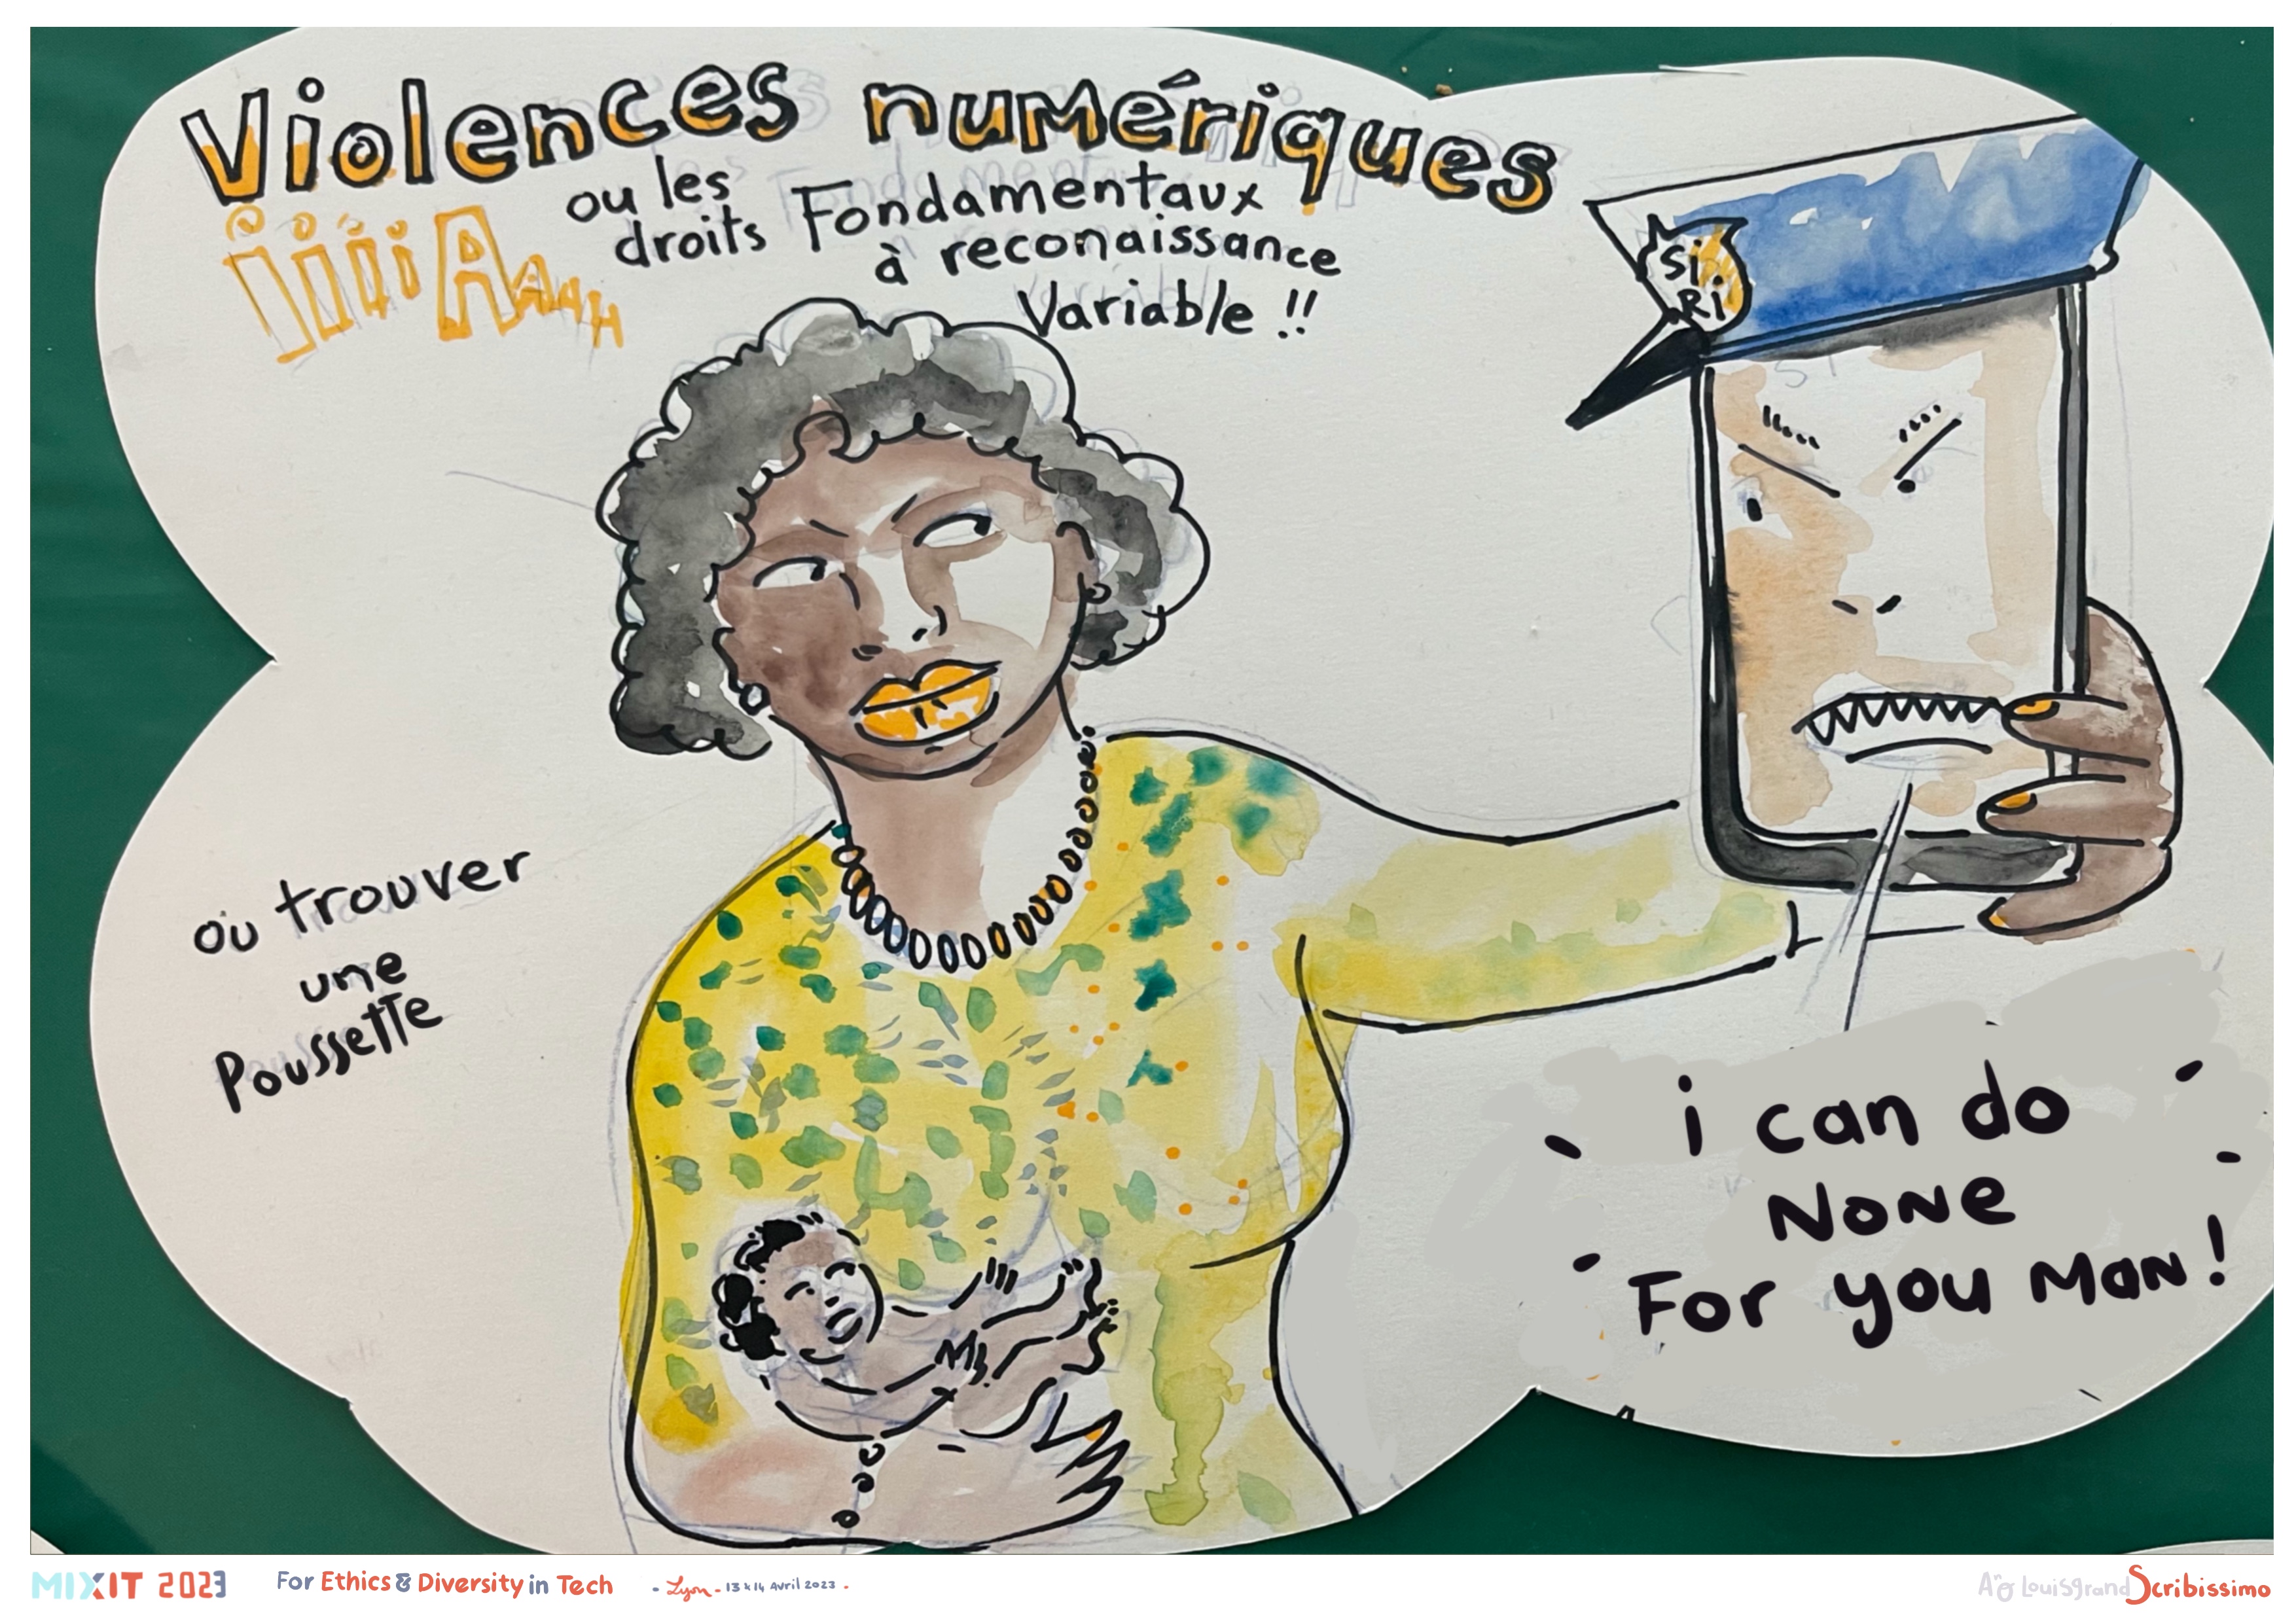 Violences numériques
iiiiAAAAH
ou les
droits Fondamentaux
à reconaissance
Variable !!
Si.
Ri
où trouver
une
Poussette
i can do
NoNe
For you Man !
MIXIT 2023 For Ethics & Diversity in Tech - Lyon - 13 & 14 Avril 2023 -
Louisgrand Scribissimo